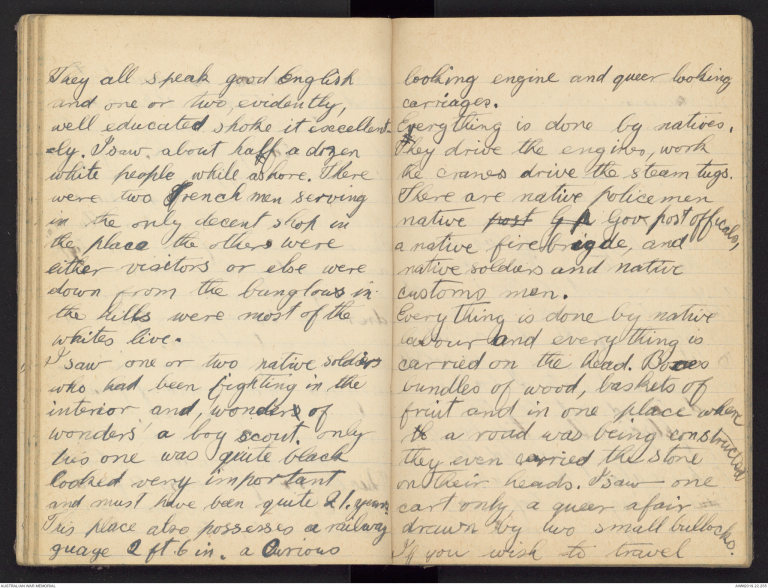 They all speak good English
and one or two, evidently,
well educated spoke it excellent-
-ly. I saw about half a dozen
white people while ashore. There
were two French men serving
in the only decent shop in
the place the others were
either visitors or else were
down from the bunglows in
the hills were most of the
whites live.
I saw one or two native soldiers
who had been fighting in the
interior and, wonders of
wonders a boy scout. only
this one was quite black
looked very important
and must have been quite 21. years
This place also possesses a railway
guage 2 ft 6 in. a Curious
looking engine and queer looking
carriages.
Everything is done by natives.
They drive the engines, work
the cranes drive the steam tugs.
There are native policemen
native post Gov. post officals,
a native fire brigade, and
native soldiers and native
customs men.
Everything is done by native
labour and everything is
carried on the head. Boxes
bundles of wood, baskets of
fruit and in one place when
a road was being constructed
they even carried the stone
on their heads. I saw one
cart only, a queer afair
drawn by two small bullocks.
If you wish to travel
AUSTRALIAN WAR MEMORIAL